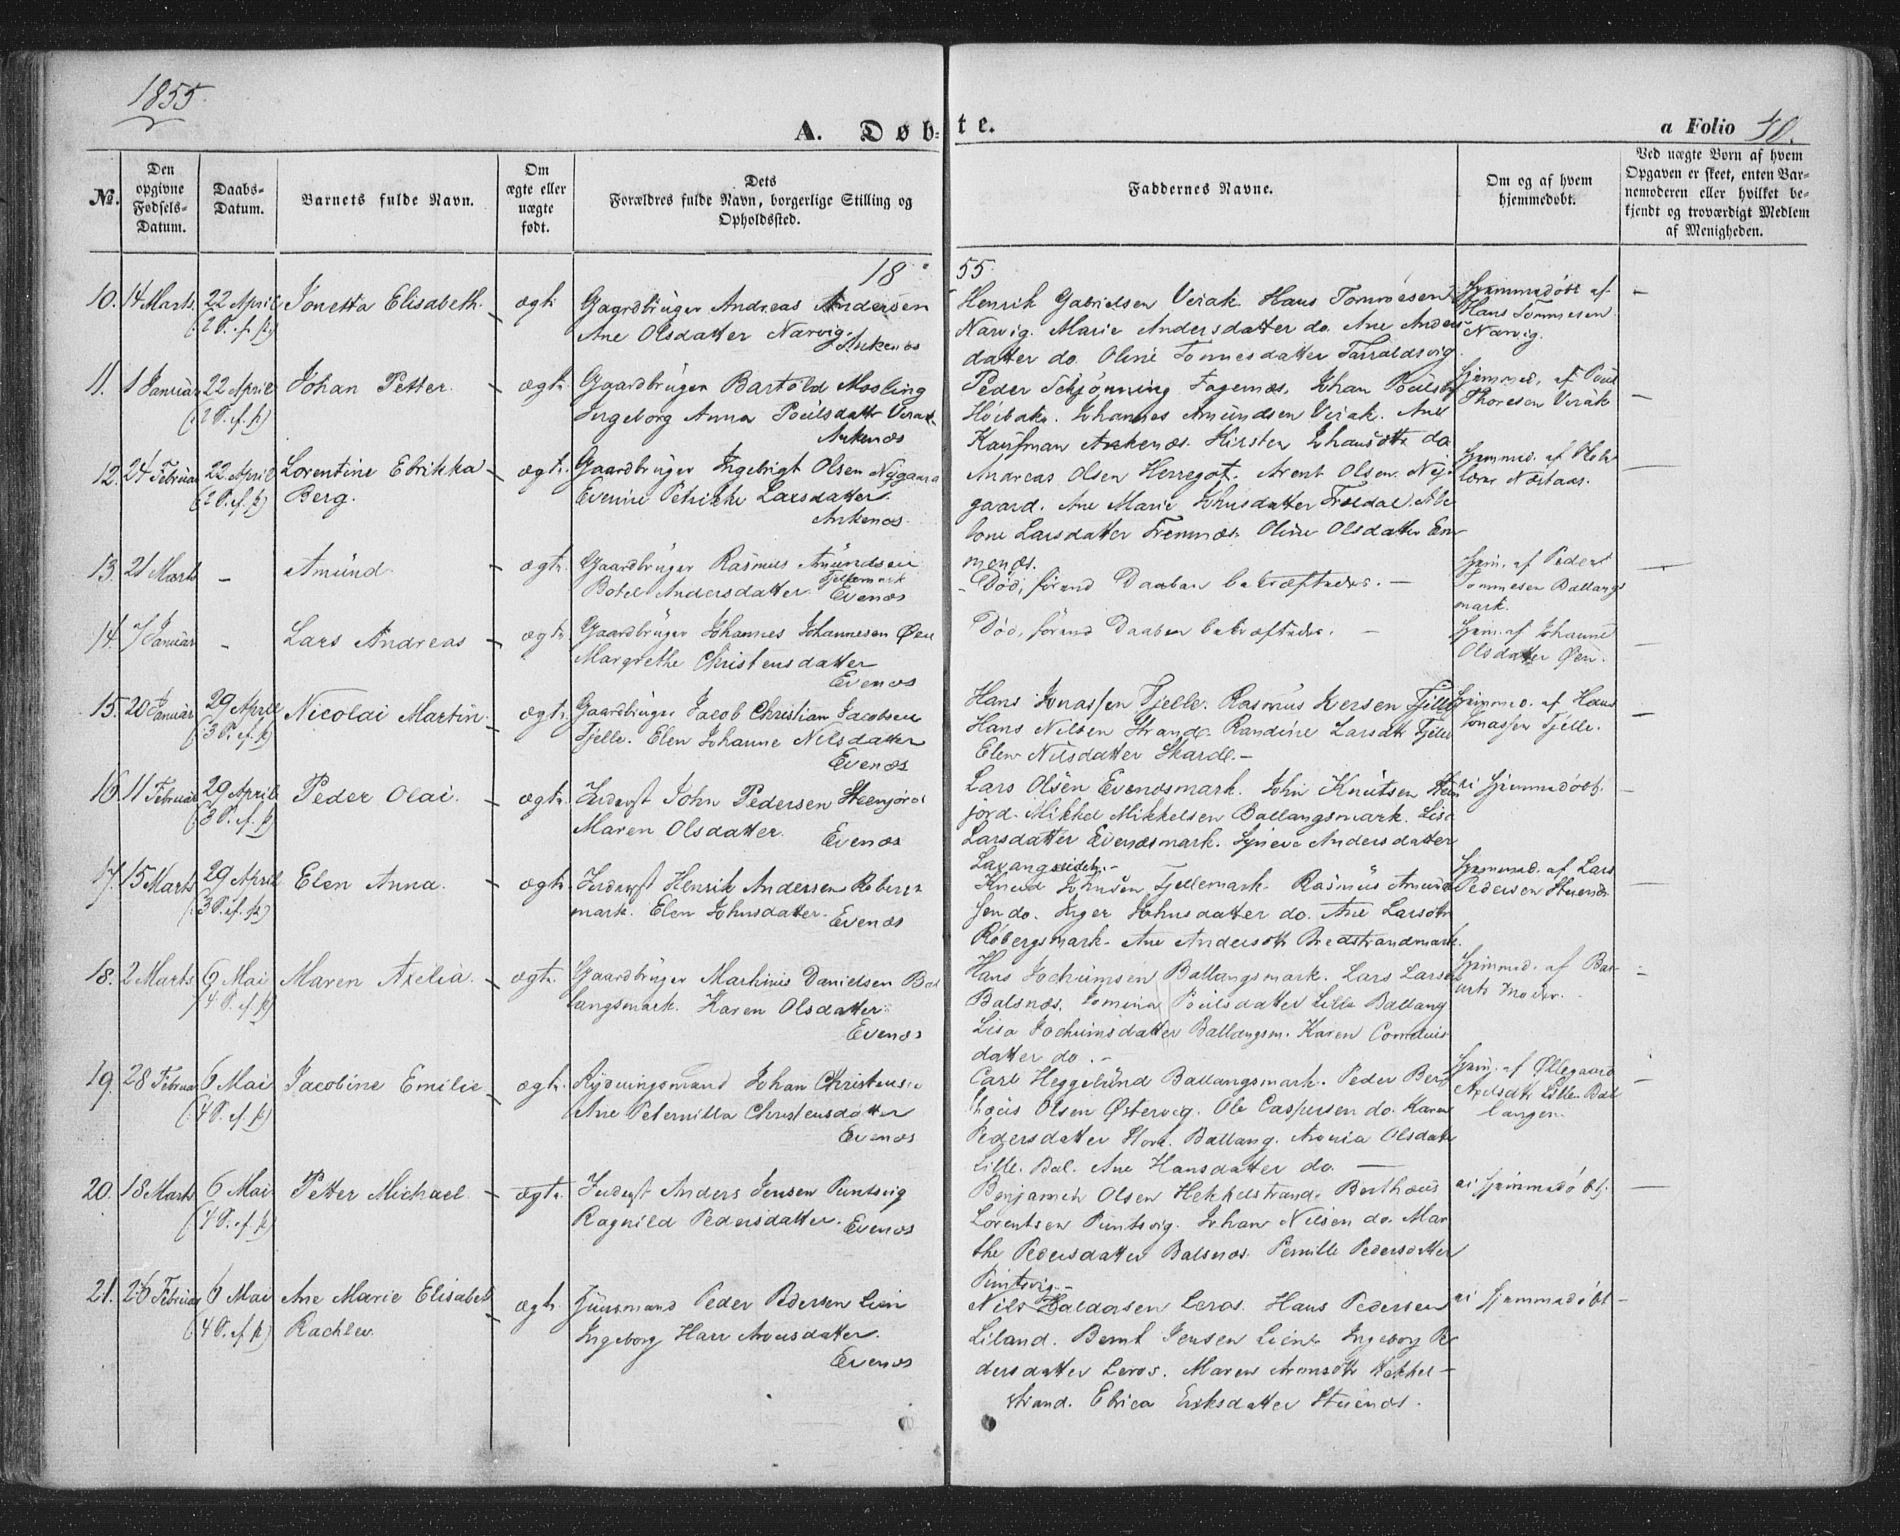 1855.
A. Døbte.
a Folio 40.
№.
Den opgivne Fødsels-Datum.
Daabs-Datum.
Barnets fulde Navn.
Om ægte eller uægte født.
Dets Forældres fulde Navn, borgerlige Stilling og Opholdssted.
Faddernes Navne.
Om og af hvem hjemmedøbt.
Ved uægte Børn af hvem Opgaven er skeet, enten Barnemoderen eller hvilket bekjendt og troværdigt Medlem af Menigheden.
1855
10. 14 Marts 22 April Jonetta Elisabeth. ægte
(2 S. ef. p)
Gaardbruger Andreas Andersen
Ane Olsdatter Narvig.
Ankenæs
Henrik Gabrielsen Verak. Hans Tommesen
Narvig. Marie Andersdatter do. Ane Anders
datter do. Oline Tommesdatter Tarraldsvig
Hjemmedøbt af
Hans Tommesen
Narvig.
11. 1 Januar 22 April Johan Petter. ægte
(2 S. ef. p)
Gaardbruger Bartold Mosling
Ingeborg Anna Poulsdattr Verak
Ankenæs
Peder Schjønning Fagernæs. Johan Poulsen
Høibak. Johannes Amundsen Verak. Ane
Kaufman Ankenæs. Kirsten Johansdtr do
Hjemmed. af Poul
Thoresen Verak
12. 24 Februar 22 April Lorentine Ebrikka
Berg.
ægte
(2 S. ef. p)
Gaardbruger Ingebrigt Olsen Nygaard
Evenine Petrikke Larsdatter.
Ankenæs.
Andreas Olsen Herregot. Arent Olsen Ny-
gaard. Ane Marie Johnsdatter Trældal. Abe
lone Larsdatter Fremnæs. Oline Olsdatter Em
menæs.
Hjemmed. af
13. 21 Marts - Amund. ægte
Gaardbruger Rasmus Amundsen
Fjellemark
Botel Andersdatter. Evenæs
Død, førend Daaben bekræftedes. -
Hjem. af Peder
Tommesen Ballangs
mark.
14. 7 Januar - Lars Andreas ægte
Gaardbruger Johannes Johannesen Øen
Margrethe Christensdatter
Evenæs
Død, førend Daaben bekræftedes. -
Hjem. af Johanne
Olsdatter Øen.
15. 20 Januar 29 April Nicolai Martin. ægte
(3 S. ef. p)
Gaardbruger Jacob Christian Jacobsen
Fjelle. Elen Johanne Nilsdatter
Evenæs
Hans Jonassen Fjelle. Rasmus Iversen Fjelle
Hans Nilsen Strand. Randine Larsdtr Fjelle
Elen Nilsdatter Skarde. -
Hjemmed. af Hans
Jonassen Fjelle.
16. 11 Februar 29 April Peder Olai. ægte
(3 S. ef. p)
Inderst John Pedersen Steenjord
Maren Olsdatter. Evenæs
Lars Olsen Evenæsmark. John Knutsen Steen
jord. Mikkel Mikkelsen Ballangsmark. Lisa
Larsdatter Evenæsmark. Synneve Andersdatter
Lavangseidet. -
ei Hjemmedøbt.
17. 15 Marts 29 April Elen Anna. ægte
(3 S. ef. p)
Inderst Henrik Andersen Robergs
mark. Elen Johnsdatter. Evenæs
Knud Johnsen Fjellemark. Rasmus Amund
sen do. Inger Johnsdatter do. Ane Larsdtr
Robergsmark. Ane Andersdtr Bredstrandmark.
Hjemmed. af Lars
Pedersen Stuenæs
18. 2 Marts 6 Mai Maren Axelia. ægte
(4 S. ef. p)
Gaardbruger Martinus Danielsen Bal
langsmark. Karen Olsdatter.
Evenæs
Hans Jochumsen Ballangsmark. Lars Larsen
Balsnæs. Jomina Poulsdatter Lille Ballang
Lisa Jochumsdatter Ballangsm. Karen Cornelius
datter do. -
Hjemmed. af Bar-
nets Moder.
19. 28 Februar 6 Mai Jacobine Emilie ægte
(4 S. ef. p)
Rydningsmand Johan Christensen
Ane Peternilla Christensdatter
Evenæs
Carl Heggelund Ballangsmark. Peder Ber
thæus Olsen Østervig. Ole Caspersen do. Karen
Pedersdatter Store Ballang. Aronia Olsdatr
Lille Bal. Ane Hansdatter do. -
Hjem. af Øllegaard
Axelsdtr Lille Bal
langen.
20. 18 Marts 6 Mai Petter Michael. ægte
(4 S. ef. p)
Inderst Anders Jensen Puntsvig
Ragnild Pedersdatter. Evenæs
Benjamin Olsen Hekkelstrand. Berthæus
Lorentsen Puntsvig. Johan Nilsen do. Mar
the Pedersdatter Balsnæs. Pernille Pedersdatter
Puntsvig. -
ei Hjemmedøbt.
21. 26 Februar 6 Mai Ane Marie Elisabet
Rachlev.
ægte
(4 S. ef. p)
Huusmand Peder Pedersen Lien
Ingeborg Harr Arnesdatter.
Evenæs
Nils Haldorsen Leros. Hans Pedersen
Liland. Bernt Jensen Lien. Ingeborg Pe
dersdatter Leros. Maren Aronsdtr Hekkel-
strand. Ebrica Eriksdatter Stuenæs.
ei Hjemmedøbt